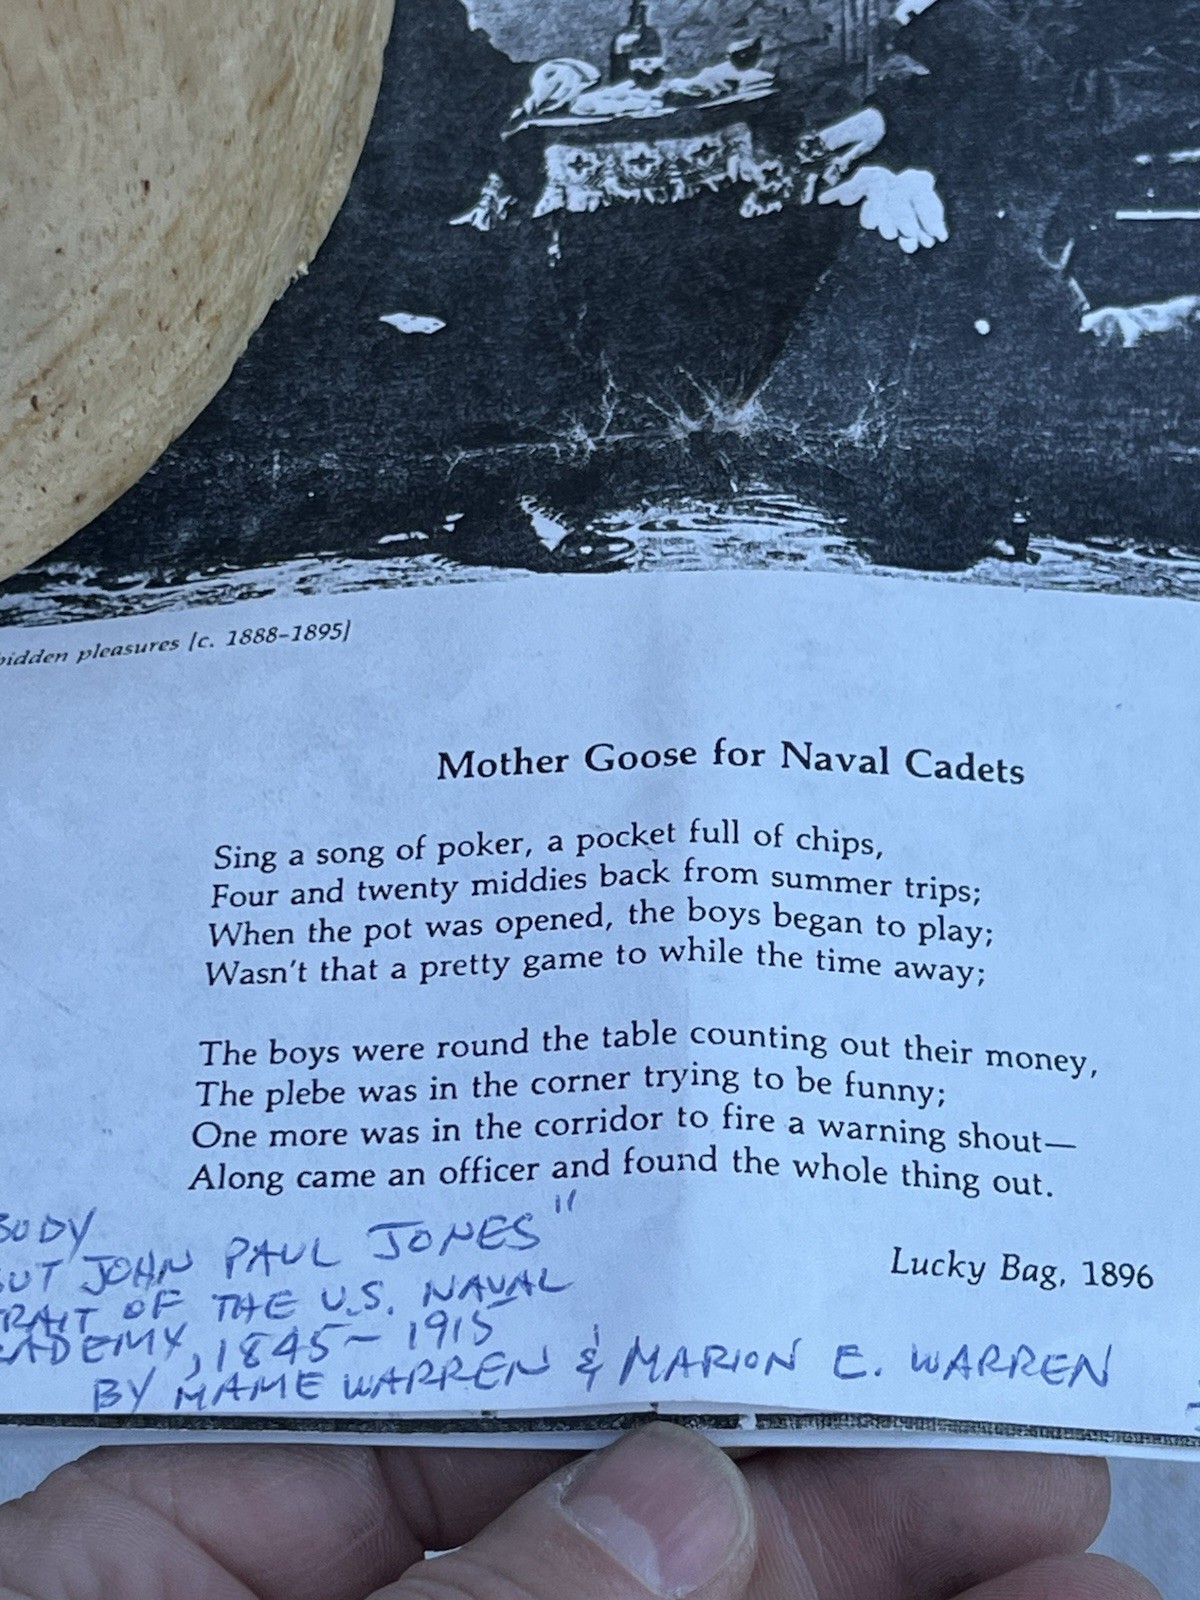 bidden pleasures [c. 1888–1895]
Mother Goose for Naval Cadets
Sing a song of poker, a pocket full of chips,
Four and twenty middies back from summer trips;
When the pot was opened, the boys began to play;
Wasn't that a pretty game to while the time away;
The boys were round the table counting out their money,
The plebe was in the corner trying to be funny;
One more was in the corridor to fire a warning shout—
Along came an officer and found the whole thing out.
Lucky Bag, 1896
BODY
UT JOHN PAUL JONES"
RAIT OF THE U.S. NAVAL
ADEMY, 1845–1915
BY MAME WARREN & MARION E. WARREN